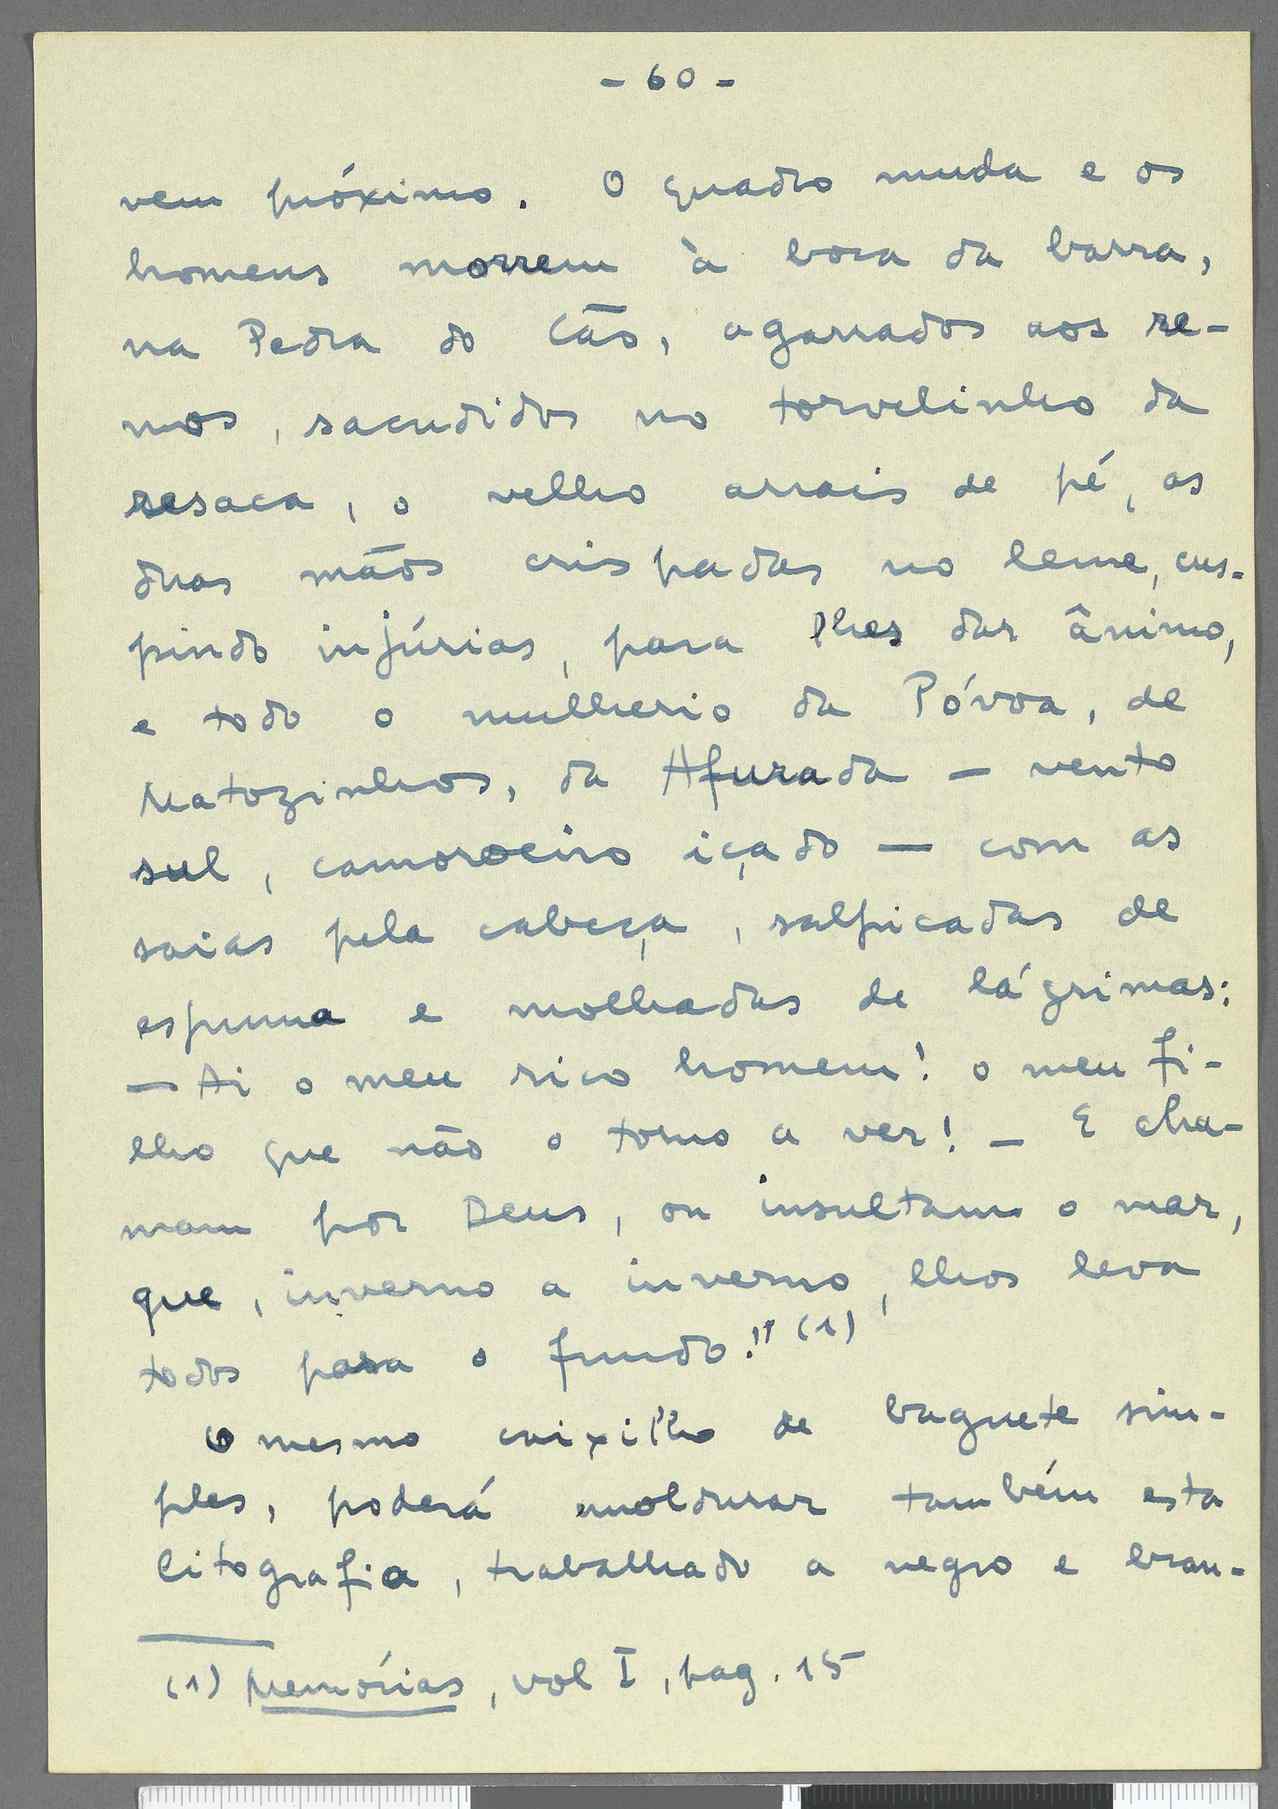 - 60 -
vem próximo. O quadro muda e os
homens morrem à boca da barra,
na Pedra do Cão, agarrados aos re-
mos, sacudidos no torvelinho da
resaca, o velho arrais de pé, as
duas mãos crispadas no leme, cus-
pindo injúrias, para lhes dar ânimo,
e todo o mulherio da Póvoa, de
Matozinhos, da Afurada — vento
sul, camoroeiro içado — com as
saias pela cabeça, salpicadas de
espuma e molhadas de lágrimas:
— Ai o meu rico homem! o meu fi-
lho que não o torno a ver! — E cha-
mam por Deus, ou insultam o mar,
que, inverno a inverno, lhos leva
todos para o fundo!" (1)
O mesmo caixilho de baguete sim-
ples, poderá emoldurar também esta
litografia, trabalhado a negro e bran-
(1) Memórias, vol I, pag. 15